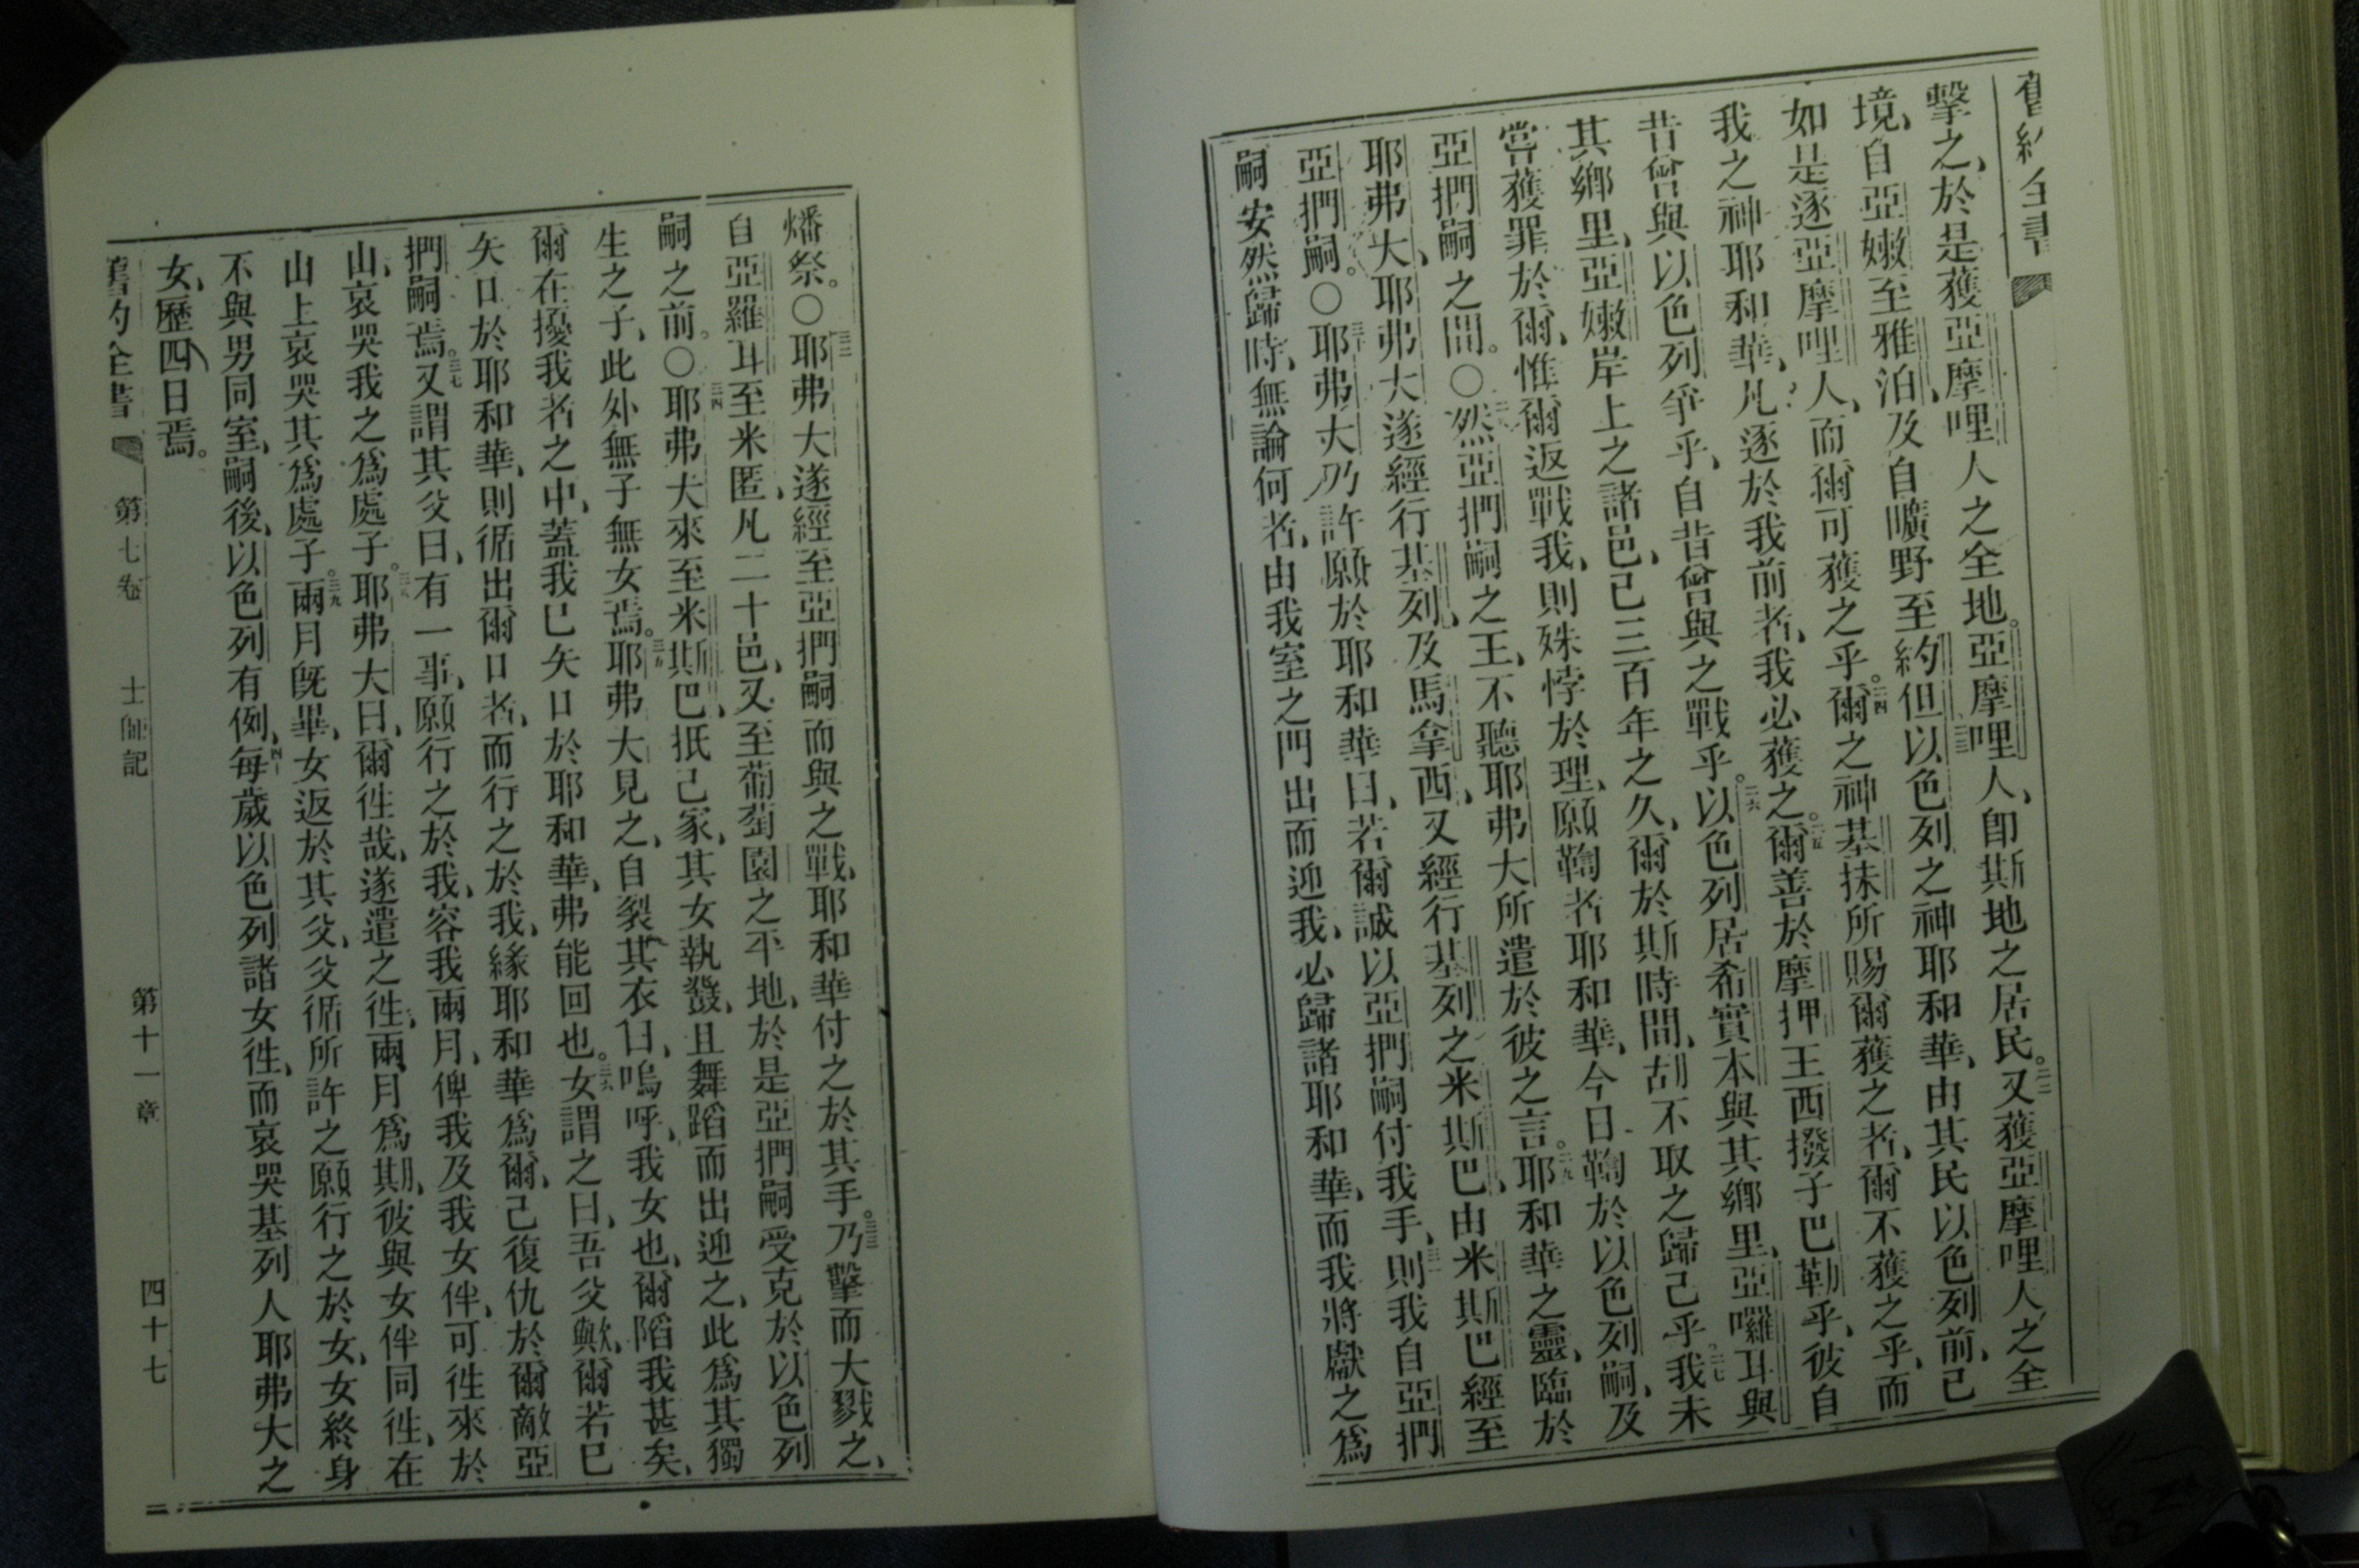 舊約全書
擊之、於是獲亞摩哩人之全地。亞摩哩人、卽斯地之居民。二二又獲亞摩哩人之全
境、自亞嫩至雅泊、及自曠野至約但。二三以色列之神耶和華、由其民以色列前、已
如是逐亞摩哩人、而爾可獲之乎。二四爾之神基抹所賜爾獲之者、爾不獲之乎、而
我之神耶和華、凡逐於我前者、我必獲之。二五爾善於摩押王西撥子巴勒乎、彼自
昔曾與以色列爭乎、自昔曾與之戰乎。二六以色列居希實本與其鄉里、亞囉耳與
其鄉里、亞嫩岸上之諸邑、已三百年之久、爾於斯時間、胡不取之歸己乎。二七我未
嘗獲罪於爾、惟爾返戰我、則殊悖於理、願鞫者耶和華、今日鞫於以色列嗣、及
亞捫嗣之間。〇二八然亞捫嗣之王、不聽耶弗大所遣於彼之言。二九耶和華之靈、臨於
耶弗大、耶弗大遂經行基列、及馬拿西、又經行基列之米斯巴、由米斯巴經至
亞捫嗣。〇三十耶弗大乃許願於耶和華曰、若爾誠以亞捫嗣付我手、三一則我自亞捫
嗣安然歸時、無論何者、由我室之門出而迎我、必歸諸耶和華、而我將獻之爲
燔祭。〇三二耶弗大遂經至亞捫嗣而與之戰、耶和華付之於其手。三三乃擊而大戮之、
自亞羅耳至米匿、凡二十邑、又至葡萄園之平地、於是亞捫嗣受克於以色列
嗣之前。〇三四耶弗大來至米斯巴、抵己家、其女執鼗、且舞蹈而出迎之、此爲其獨
生之子、此外無子無女焉。三五耶弗大見之、自裂其衣曰、嗚呼、我女也、爾陷我甚矣、
爾在擾我者之中、蓋我已矢口於耶和華、弗能回也。三六女謂之曰、吾父歟、爾若已
矢口於耶和華、則循出爾口者、而行之於我、緣耶和華爲爾、己復仇於爾敵亞
捫嗣焉。三七又謂其父曰、有一事、願行之於我、容我兩月、俾我及我女伴、可徃來於
山、哀哭我之爲處子。三八耶弗大曰、爾徃哉、遂遣之徃、兩月爲期、彼與女伴同徃、在
山上哀哭其爲處子。三九兩月旣畢、女返於其父、父循所許之願行之於女、女終身
不與男同室、嗣後、以色列有例、四十每歲以色列諸女徃、而哀哭基列人耶弗大之
女、歷四日焉。
舊約全書 第七卷 士師記 第十一章 四十七